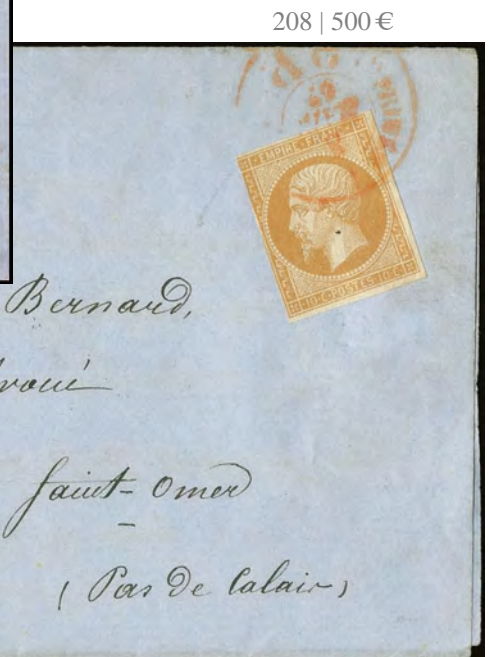 208 | 500 €
EMPIRE FRANC
10.C.POSTES.10.C
Bernard,
Saint-Omer
(Pas De Calais)